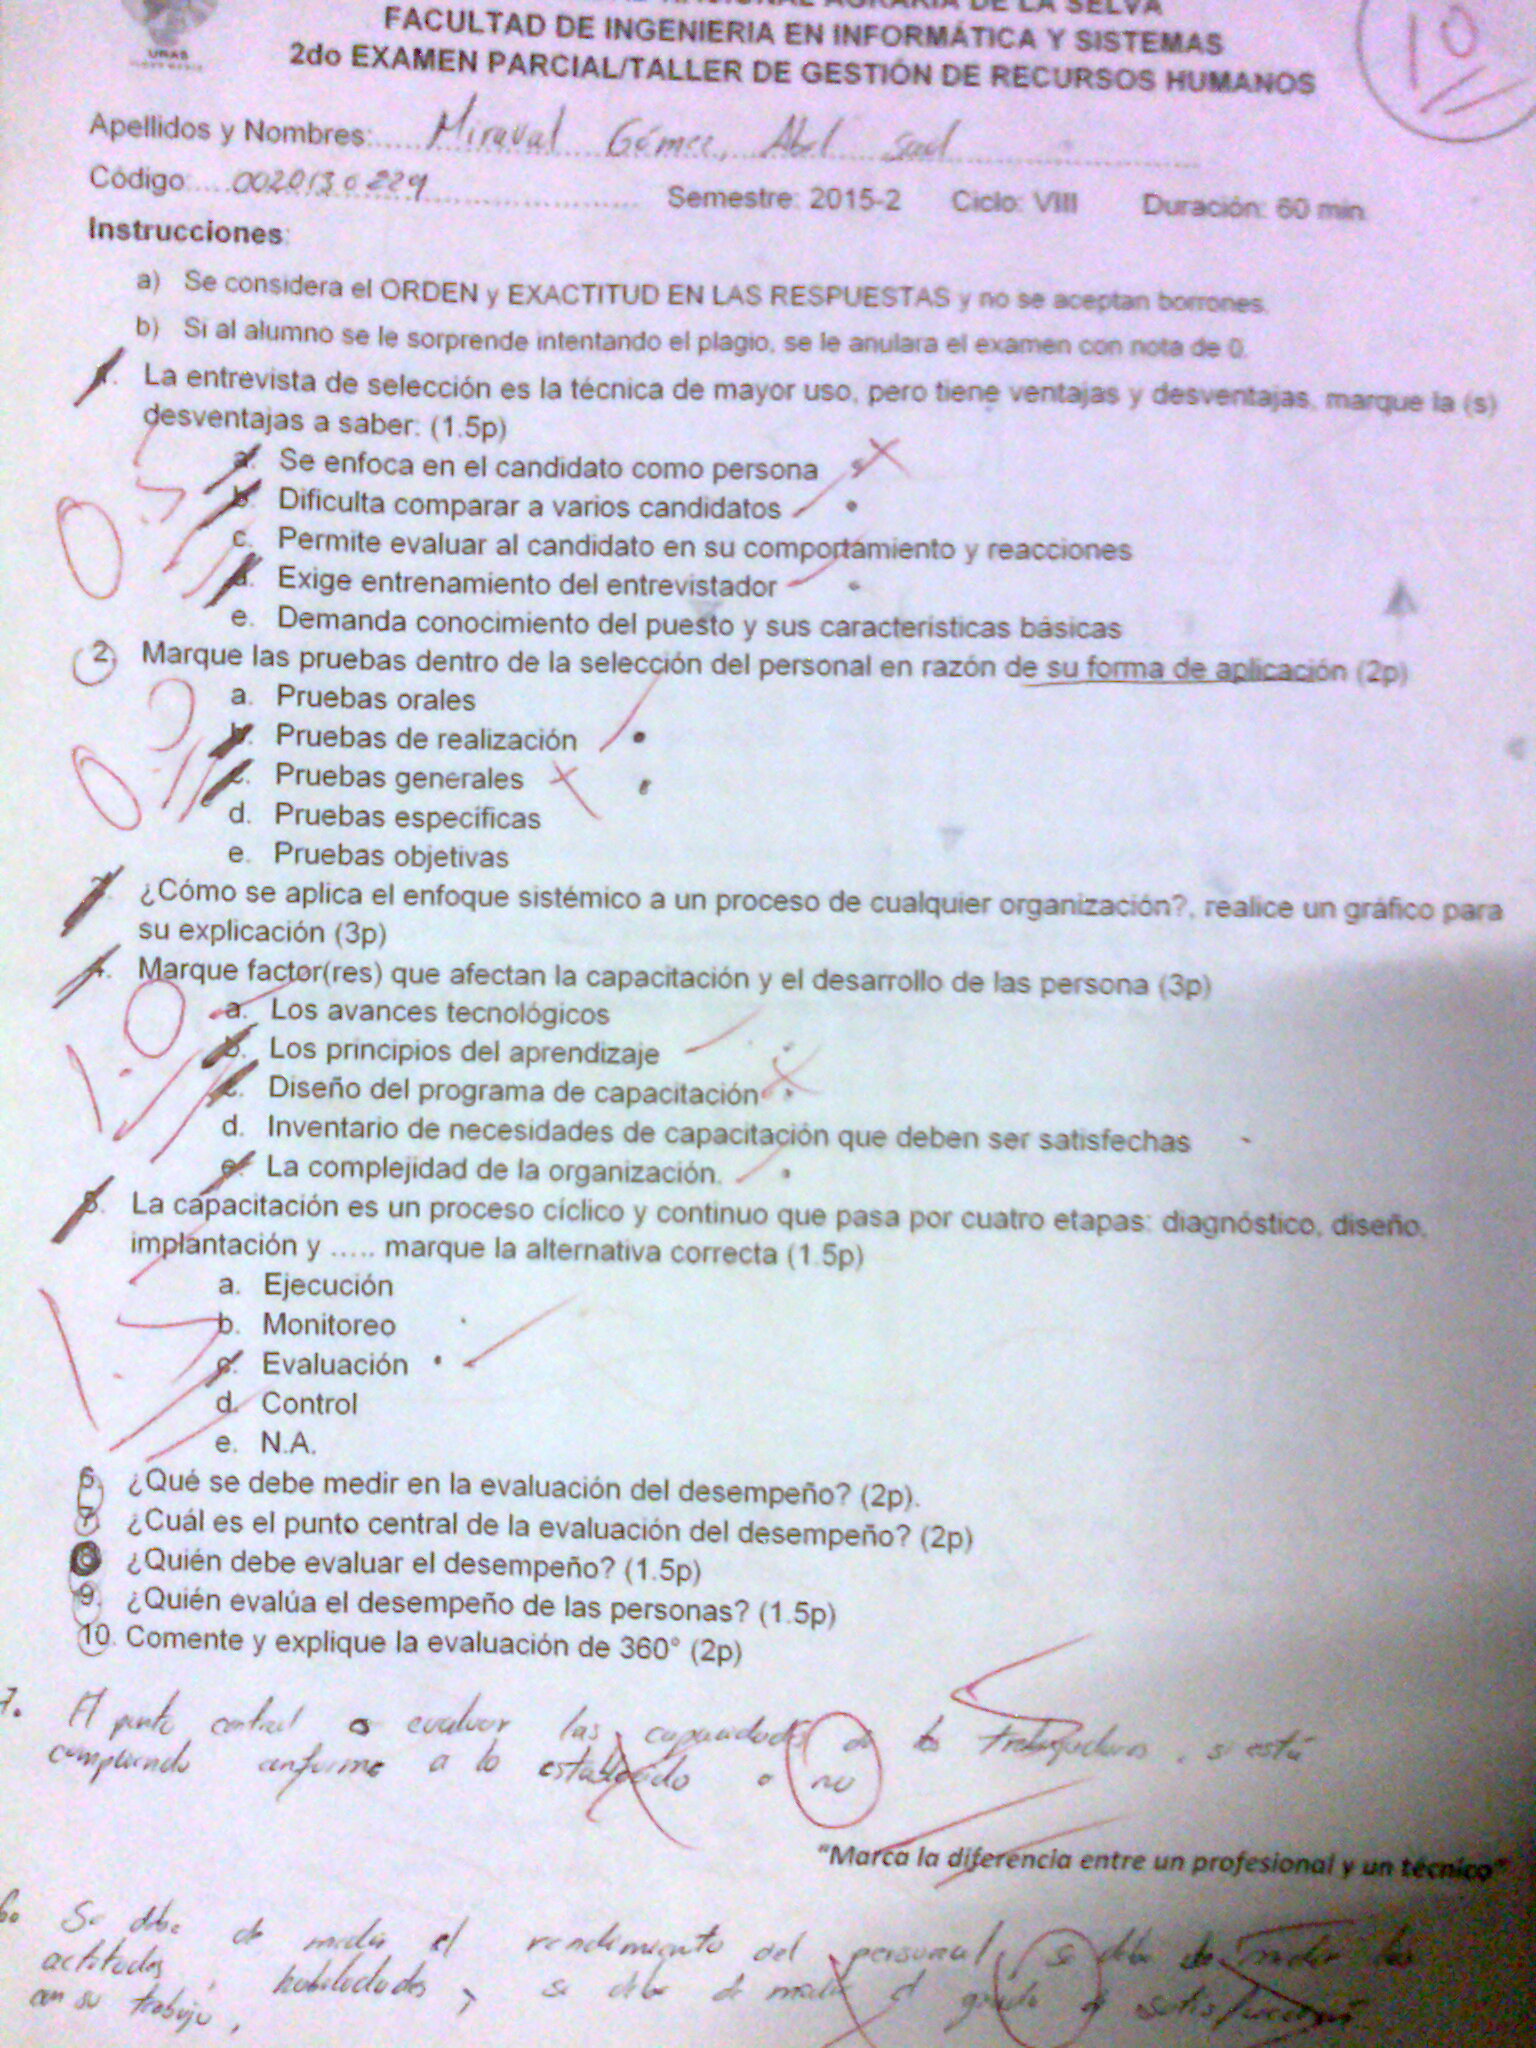 NACIONAL AGRARIA DE LA SELVA
FACULTAD DE INGENIERIA EN INFORMÁTICA Y SISTEMAS
2do EXAMEN PARCIAL/TALLER DE GESTIÓN DE RECURSOS HUMANOS
UNAS
10
Apellidos y Nombres: Miraval Gómez, Abel Sad
Código: 0020130229 Semestre: 2015-2 Ciclo: VIII Duración: 60 min.
Instrucciones:
a) Se considera el ORDEN y EXACTITUD EN LAS RESPUESTAS y no se aceptan borrones.
b) Si al alumno se le sorprende intentando el plagio, se le anulara el examen con nota de 0.
1. La entrevista de selección es la técnica de mayor uso, pero tiene ventajas y desventajas, marque la (s)
desventajas a saber: (1.5p)
a. Se enfoca en el candidato como persona
b. Dificulta comparar a varios candidatos
c. Permite evaluar al candidato en su comportamiento y reacciones
d. Exige entrenamiento del entrevistador
e. Demanda conocimiento del puesto y sus características básicas
2. Marque las pruebas dentro de la selección del personal en razón de su forma de aplicación (2p)
a. Pruebas orales
b. Pruebas de realización
c. Pruebas generales
d. Pruebas específicas
e. Pruebas objetivas
3. ¿Cómo se aplica el enfoque sistémico a un proceso de cualquier organización?, realice un gráfico para
su explicación (3p)
4. Marque factor(res) que afectan la capacitación y el desarrollo de las persona (3p)
a. Los avances tecnológicos
b. Los principios del aprendizaje
c. Diseño del programa de capacitación
d. Inventario de necesidades de capacitación que deben ser satisfechas
e. La complejidad de la organización.
5. La capacitación es un proceso cíclico y continuo que pasa por cuatro etapas: diagnóstico, diseño,
implantación y ..... marque la alternativa correcta (1.5p)
a. Ejecución
b. Monitoreo
c. Evaluación
d. Control
e. N.A.
6. ¿Qué se debe medir en la evaluación del desempeño? (2p).
7. ¿Cuál es el punto central de la evaluación del desempeño? (2p)
8. ¿Quién debe evaluar el desempeño? (1.5p)
9. ¿Quién evalúa el desempeño de las personas? (1.5p)
10. Comente y explique la evaluación de 360° (2p)
7. El punto central es evaluar las capacidades de los trabajadores, si está
cumpliendo conforme a lo establecido o no
"Marca la diferencia entre un profesional y un técnico"
6. Se debe de medir el rendimiento del personal, se debe de medir las
actitudes, habilidades, se debe de medir el grado de satisfacción
con su trabajo.